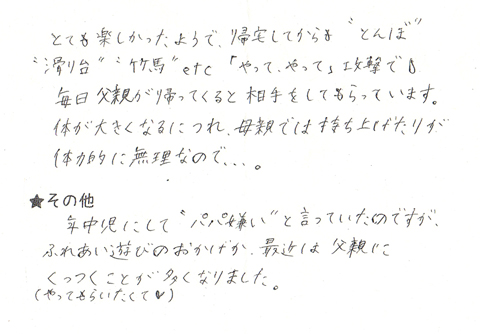 とても楽しかったようで、帰宅してからも "とんぼ"
"滑り台" "竹馬" etc 「やって、やって」攻撃で♪
毎日父親が帰ってくると相手をしてもらっています。
体が大きくなるにつれ、母親では持ち上げたりが
体力的に無理なので、、、。
★その他
年中児にして "パパ嫌い" と言っていたのですが、
ふれあい遊びのおかげか、最近は父親に
くっつくことが多くなりました。
(やってもらいたくて♥)